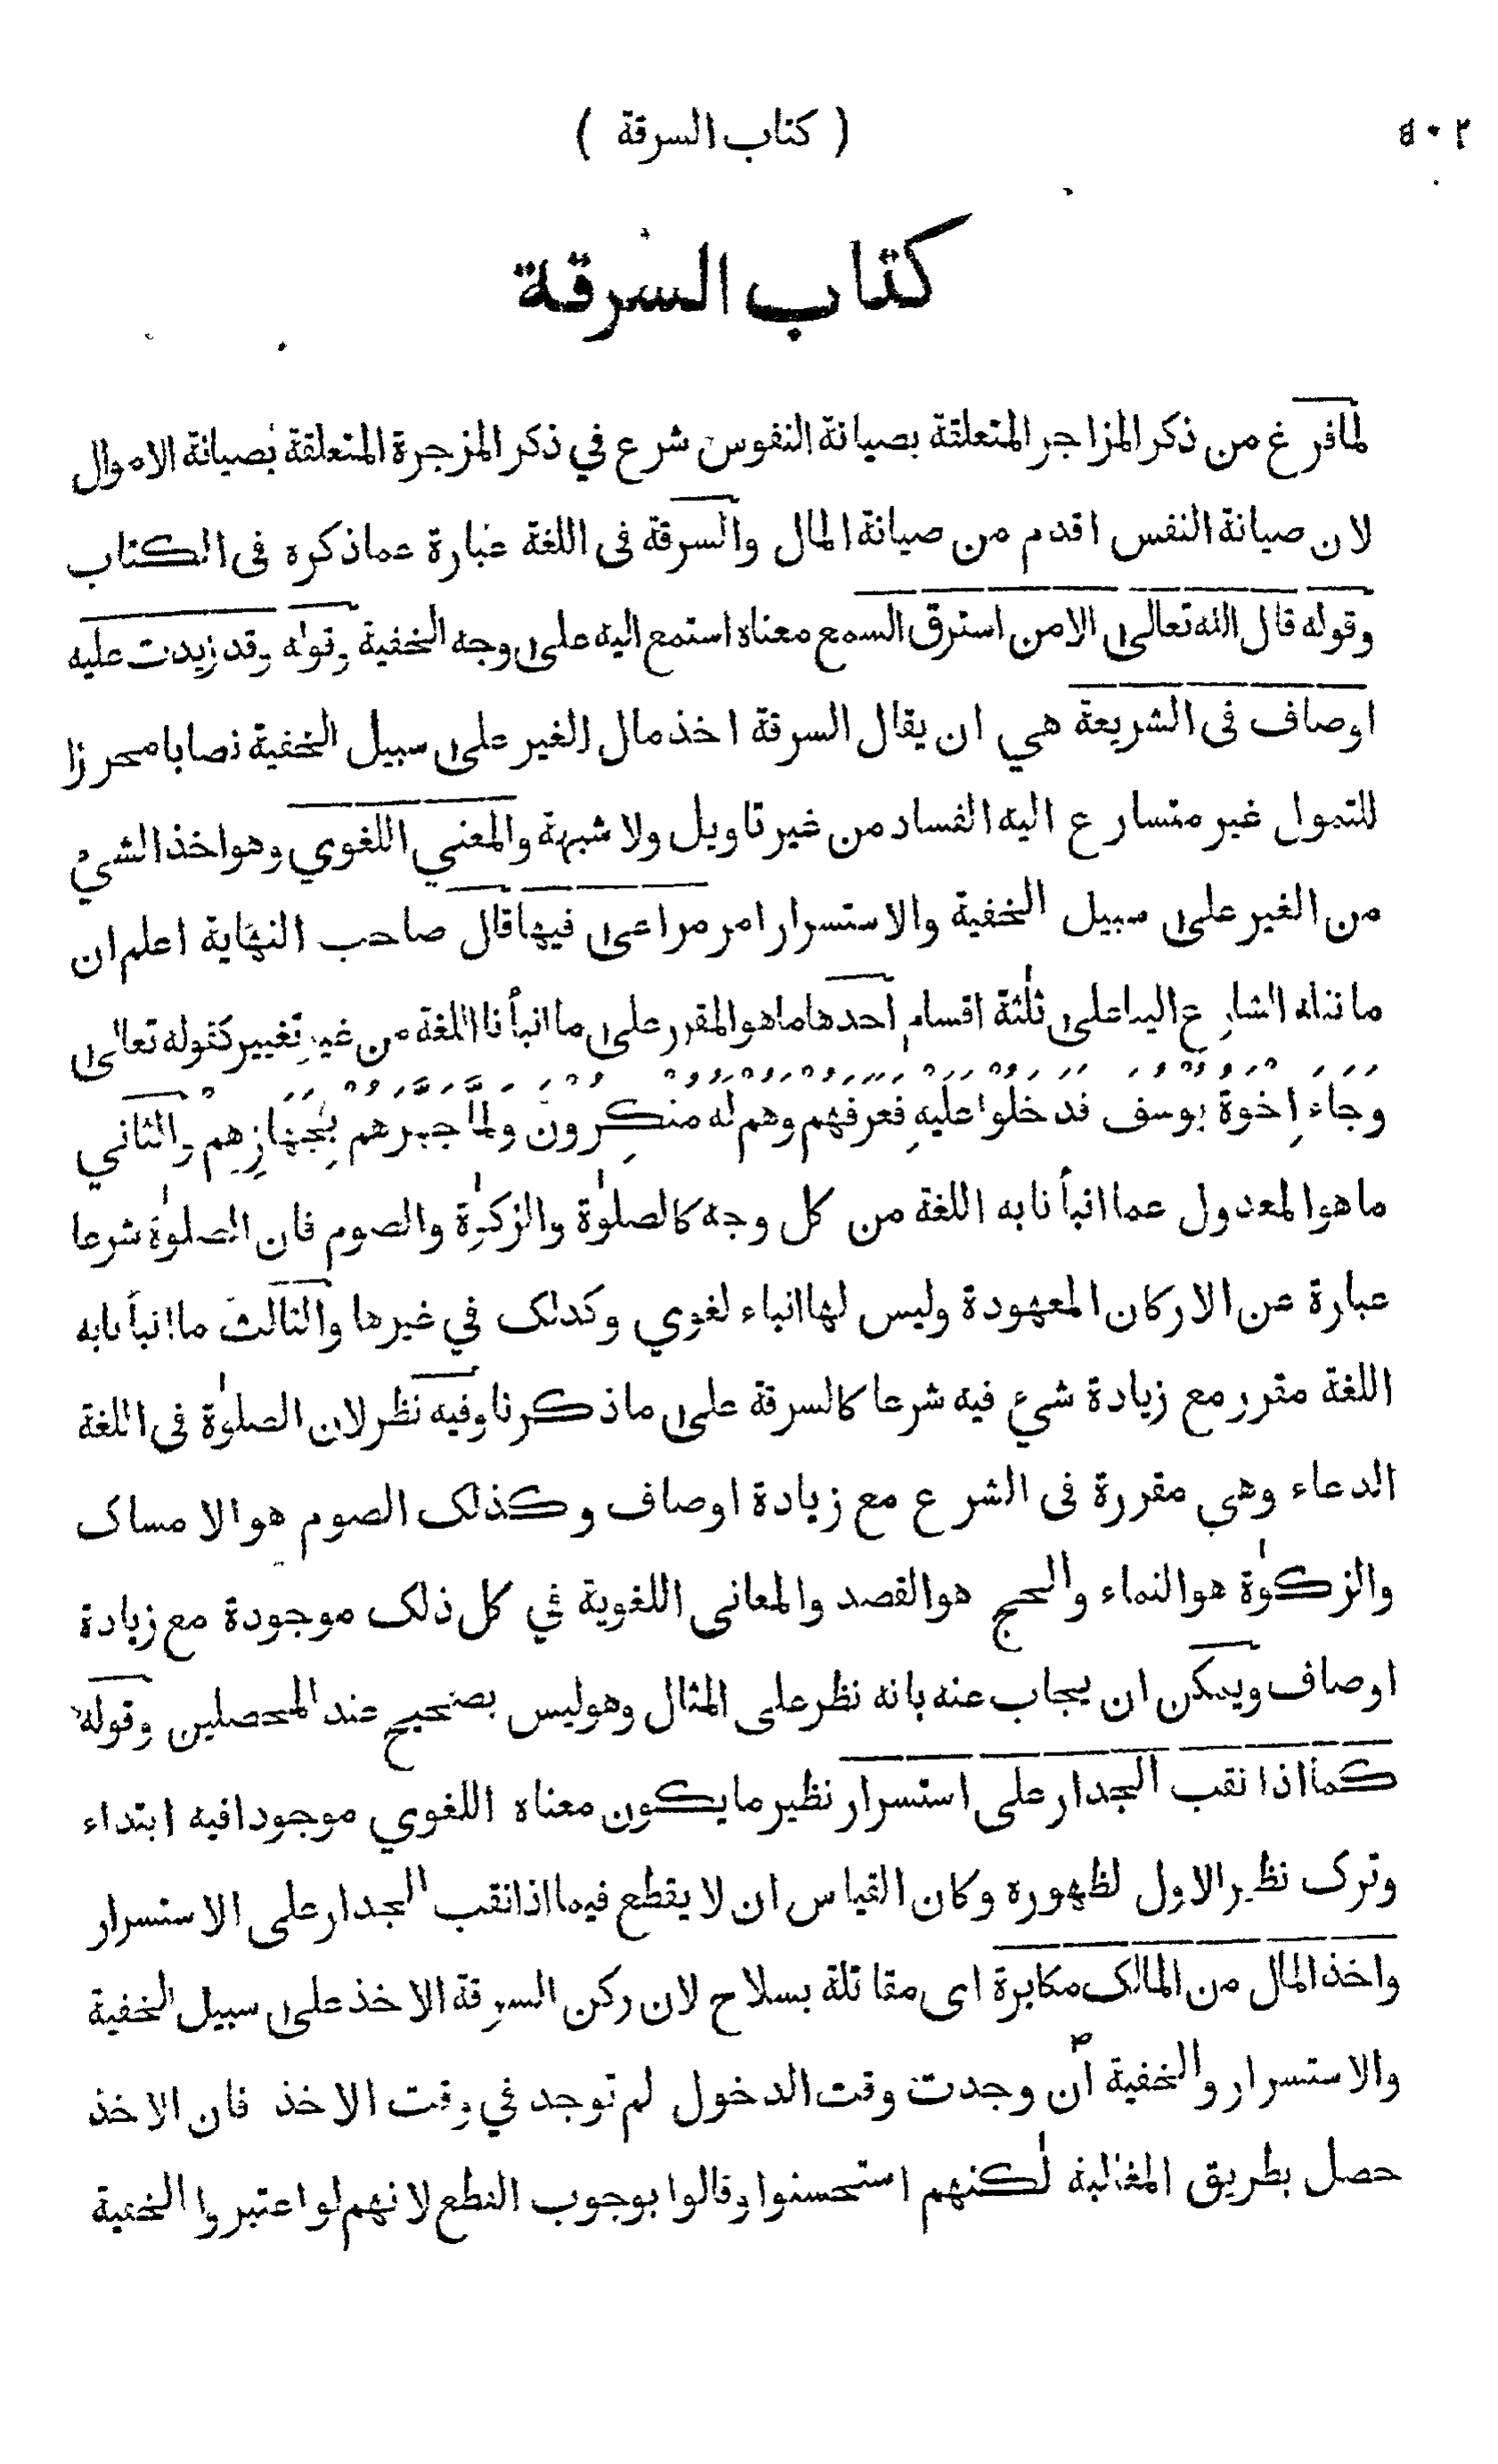 ٥٠٢
( كتاب السرقة )
كتاب السرقة
لما فرغ من ذكر المزاجر المتعلقة بصيانة النفوس شرع في ذكر المزجرة المتعلقة بصيانة الاموال
لان صيانة النفس اقدم من صيانة المال والسرقة فى اللغة عبارة عما ذكره فى الكتاب
وقوله قال الله تعالى الا من استرق السمع معناه استمع اليه على وجه الخفية وقوله وقد زيدت عليه
اوصاف فى الشريعة هي ان يقال السرقة اخذ مال الغير على سبيل الخفية نصابا محرزا
للتمول غير متسارع اليه الفساد من غير تاويل ولا شبهة والمعني اللغوي وهو اخذ الشيء
من الغير على سبيل الخفية والاستسرار امر مراعى فيها قال صاحب النهاية اعلم ان
ما نقله الشارع الينا على ثلٰثة اقسام احدها ما هو المقرر على ما انبأنا اللغة من غير تغيير كقوله تعالى
وَجَاءَ اِخْوَةُ يُوسُفَ فَدَخَلُوا عَلَيْهِ فَعَرَفَهُمْ وَهُمْ لَهُ مُنْكِرُونَ وَلَمَّا جَهَّزَهُمْ بِجَهَازِهِمْ والثاني
ما هو المعدول عما انبأنا به اللغة من كل وجه كالصلوٰة والزكوٰة والصوم فان الصلوٰة شرعا
عبارة عن الاركان المعهودة وليس لها انباء لغوي وكذلك في غيرها والثالث ما انبأنا به
اللغة مقرر مع زيادة شيء فيه شرعا كالسرقة على ما ذكرنا وفيه نظر لان الصلوٰة فى اللغة
الدعاء وهى مقررة فى الشرع مع زيادة اوصاف وكذلك الصوم هو الامساك
والزكوٰة هو النماء والحج هو القصد والمعانى اللغوية في كل ذلك موجودة مع زيادة
اوصاف ويمكن ان يجاب عنه بانه نظر على المثال وهو ليس بصحيح عند المحصلين وقوله
كما اذا نقب الجدار على استسرار نظير ما يكون معناه اللغوي موجودا فيه ابتداء
وترك نظير الاول لظهوره وكان القياس ان لا يقطع فيما اذا نقب الجدار على الاستسرار
واخذ المال من المالك مكابرة اى مقاتلة بسلاح لان ركن السرقة الاخذ على سبيل الخفية
والاستسرار والخفية ان وجدت وقت الدخول لم توجد في وقت الاخذ فان الاخذ
حصل بطريق المغالبة لٰكنهم استحسنوا وقالوا بوجوب القطع لانهم لو اعتبروا الخفية